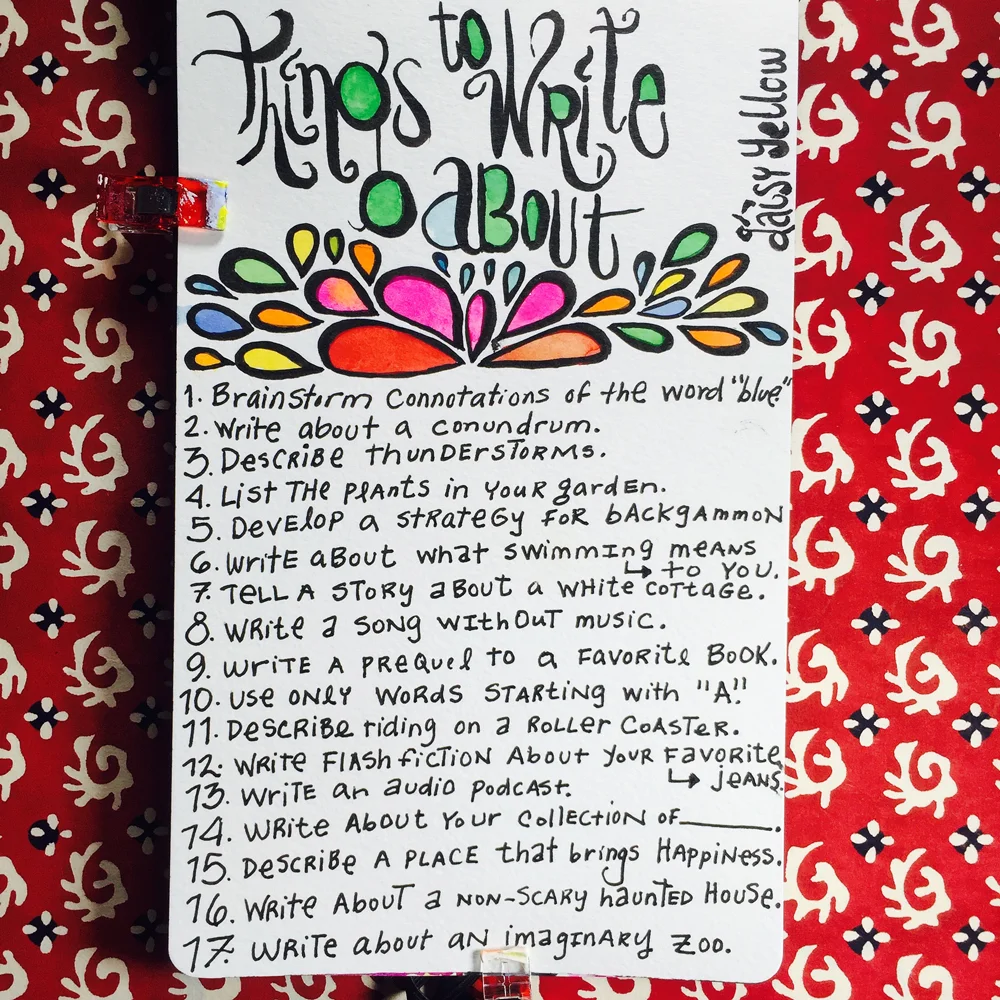 Things to Write
about
daisy yellow
1. Brainstorm connotations of the word "blue"
2. Write about a conundrum.
3. Describe thunderstorms.
4. List the plants in your garden.
5. Develop a strategy for backgammon
6. Write about what swimming means
↳ to you.
7. Tell a story about a white cottage.
8. Write a song without music.
9. Write a prequel to a favorite book.
10. Use only words starting with "A."
11. Describe riding on a roller coaster.
12. Write flash fiction about your favorite
↳ jeans.
13. Write an audio podcast.
14. Write about your collection of______.
15. Describe a place that brings happiness.
16. Write about a non-scary haunted house.
17. Write about an imaginary zoo.